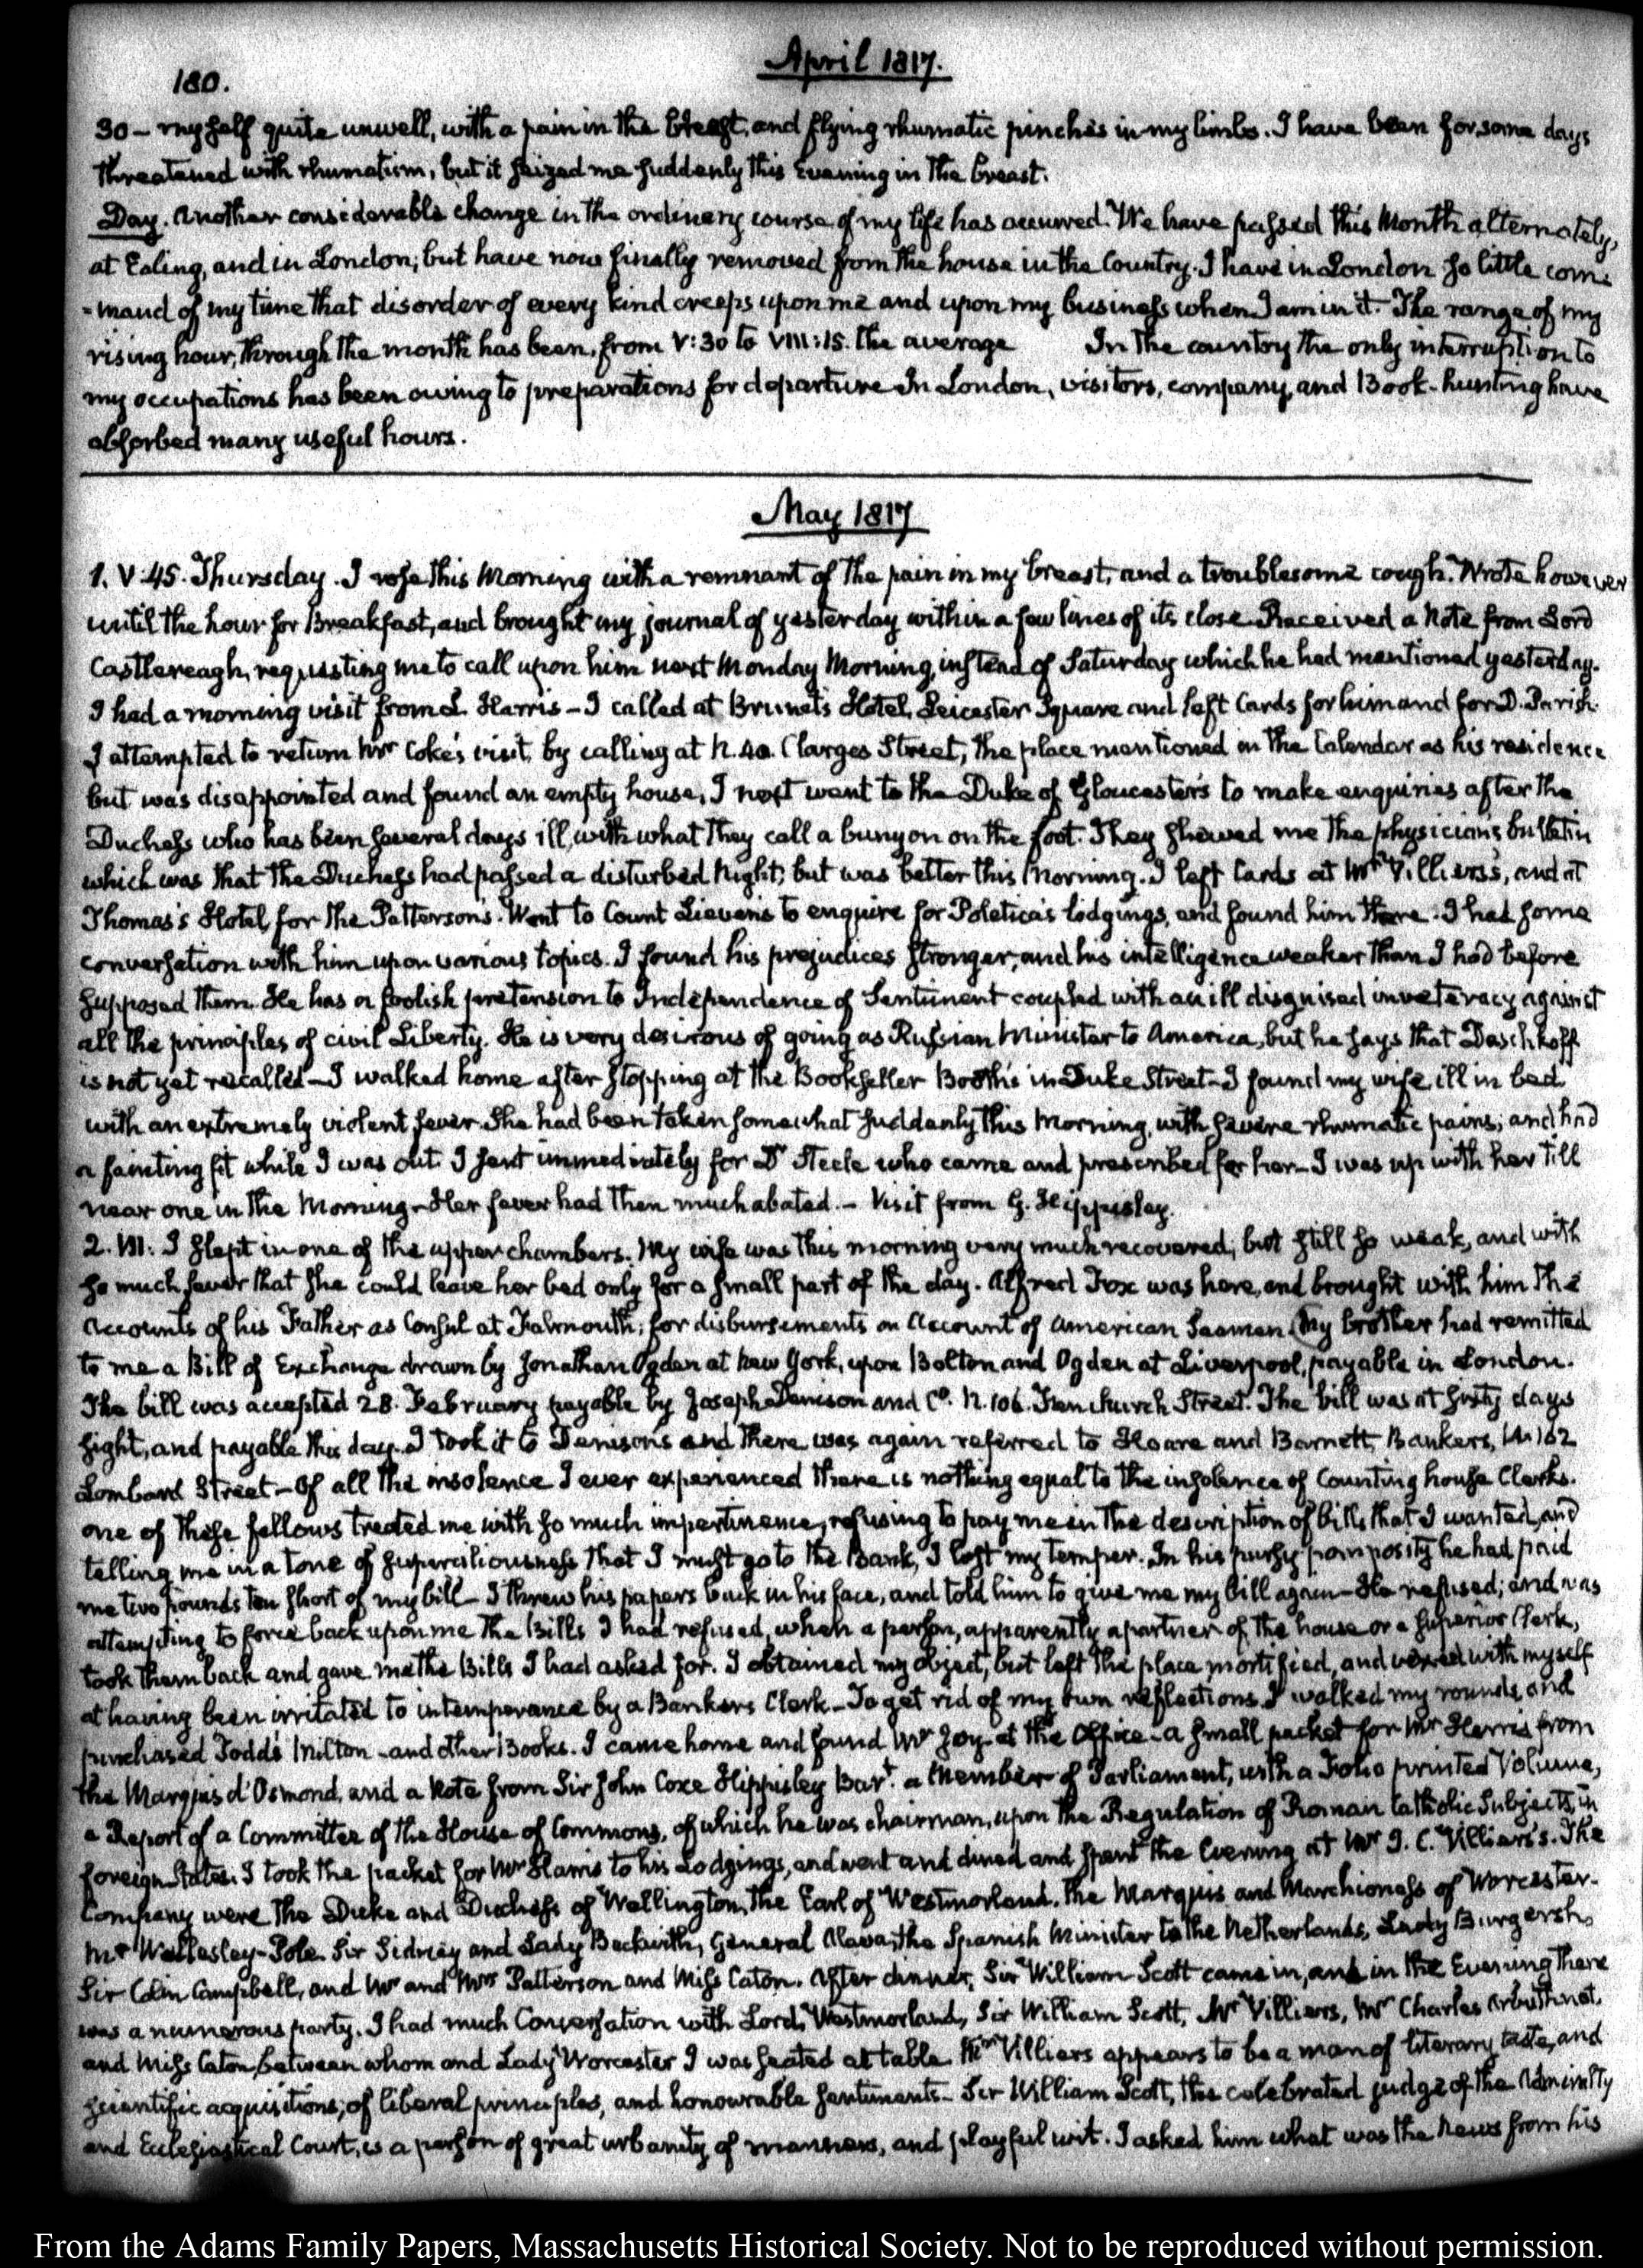 April 1817.
180.
30 – myself quite unwell, with a pain in the breast, and flying rhumatic pinches in my limbs. I have been for some days
threatened with rhumatism, but it seized me suddenly this Evening in the breast.
Day. Another considerable change in the ordinary course of my life has occurred. We have passed this Month alternately,
at Ealing, and in London; but have now finally removed from the house in the Country. I have in London so little com-
-mand of my time that disorder of every kind creeps upon me and upon my business when I am in it. The range of my
rising hour, through the month has been, from V:30 to VIII:15. the average In the country the only interruption to
my occupations has been owing to preparations for departure. In London, visitors, company, and Book-hunting have
absorbed many useful hours.
May 1817
1. V:45. Thursday. I rose this Morning with a remnant of the pain in my breast, and a troublesome cough. Wrote however
until the hour for Breakfast, and brought my journal of yesterday within a few lines of its close. Received a Note from Lord
Castlereagh, requesting me to call upon him next Monday Morning, instead of Saturday which he had mentioned yesterday.
I had a morning visit from L. Harris – I called at Brunet's Hotel, Leicester Square and left Cards for him and for D. Parish.
I attempted to return Mr Coke's visit, by calling at N. 40. Clarges Street, the place mentioned in the Calendar as his residence
but was disappointed and found an empty house, I next went to the Duke of Gloucester's to make enquiries after the
Duchess who has been several days ill, with what they call a bunyon on the foot. They shewed me the physician's bulletin
which was that the Duchess had passed a disturbed Night; but was better this Morning. I left Cards at Mr Villiers's, and at
Thomas's Hotel, for the Pattersons. Went to Count Lieven's to enquire for Poletica's lodgings, and found him there. I had some
conversation with him upon various topics. I found his prejudices stronger, and his intelligence weaker than I had before
supposed them. He has a foolish pretension to Independence of Sentiment coupled with an ill disguised inveteracy against
all the principles of civil Liberty. He is very desirous of going as Russian Minister to America, but he says that Daschkoff
is not yet recalled – I walked home after stopping at the Bookseller Booth's in Duke Street – I found my wife, ill in bed
with an extremely violent fever. She had been taken somewhat suddenly this Morning, with severe rhumatic pains; and had
a fainting fit while I was out. I sent immediately for Dr Steele who came and prescribed for her – I was up with her till
near one in the Morning – Her fever had then much abated. – Visit from G. Hippisley.
2. VII: I slept in one of the upper chambers. My wife was this morning very much recovered; but still so weak, and with
so much fever that she could leave her bed only for a small part of the day. Alfred Fox was here, and brought with him the
Accounts of his Father as Consul at Falmouth; for disbursements on Account of American Seamen. My brother had remitted
to me a Bill of Exchange drawn by Jonathan Ogden at New York, upon Bolton and Ogden at Liverpool, payable in London.
The bill was accepted 28. February payable by Joseph Denison and Co. N. 106. Fenchurch Street. The bill was at sixty days
sight, and payable this day. I took it to Denison's and there was again referred to Hoare and Barnett, Bankers, N. 62
Lombard Street – Of all the insolence I ever experienced there is nothing equal to the insolence of Counting house Clerks.
one of these fellows treated me with so much impertinence, refusing to pay me in the description of bills that I wanted, and
telling me in a tone of superciliousness that I must go to the Bank, I lost my temper. In his pursy pomposity he had paid
me two pounds ten short of my bill – I threw his papers back in his face, and told him to give me my bill again – He refused; and was
attempting to force back upon me the Bills I had refused, when a person, apparently a partner of the house or a Superior Clerk,
took them back and gave me the Bills I had asked for. I obtained my object, but left the place mortified, and vexed with myself
at having been irritated to intemperance by a Bankers Clerk – To get rid of my own reflections I walked my rounds, and
purchased Todd's Milton – and other Books. I came home and found Mr Joy at the Office – a small packet for Mr Harris from
the Marquis d'Osmond, and a Note from Sir John Coxe Hippisley Bart. a Member of Parliament, with a Folio printed Volume,
a Report of a Committee of the House of Commons, of which he was chairman, upon the Regulation of Roman Catholic Subjects, in
foreign States. I took the packet for Mr Harris to his Lodgings, and went and dined and spent the Evening at Mr J. C. Villiers's. The
Company were the Duke and Duchess of Wellington, the Earl of Westmorland. the Marquis and Marchioness of Worcester.
Mr Wellesley-Pole. Sir Sidney and Lady Beckwith, General Alava, the Spanish Minister to the Netherlands, Lady Burgersh,
Sir Colin Campbell, and Mr and Mrs Patterson and Miss Caton. After dinner, Sir William Scott came in, and in the Evening there
was a numerous party. I had much Conversation with Lord Westmorland, Sir William Scott, Mr Villiers, Mr Charles Arbuthnot,
and Miss Caton, between whom and Lady Worcester I was seated at table. Mr Villiers appears to be a man of literary taste, and
scientific acquisitions; of liberal principles, and honourable sentiments – Sir William Scott, the celebrated judge of the Admiralty
and Ecclesiastical Court, is a person of great urbanity of manners, and playful wit. I asked him what was the News from his
From the Adams Family Papers, Massachusetts Historical Society. Not to be reproduced without permission.